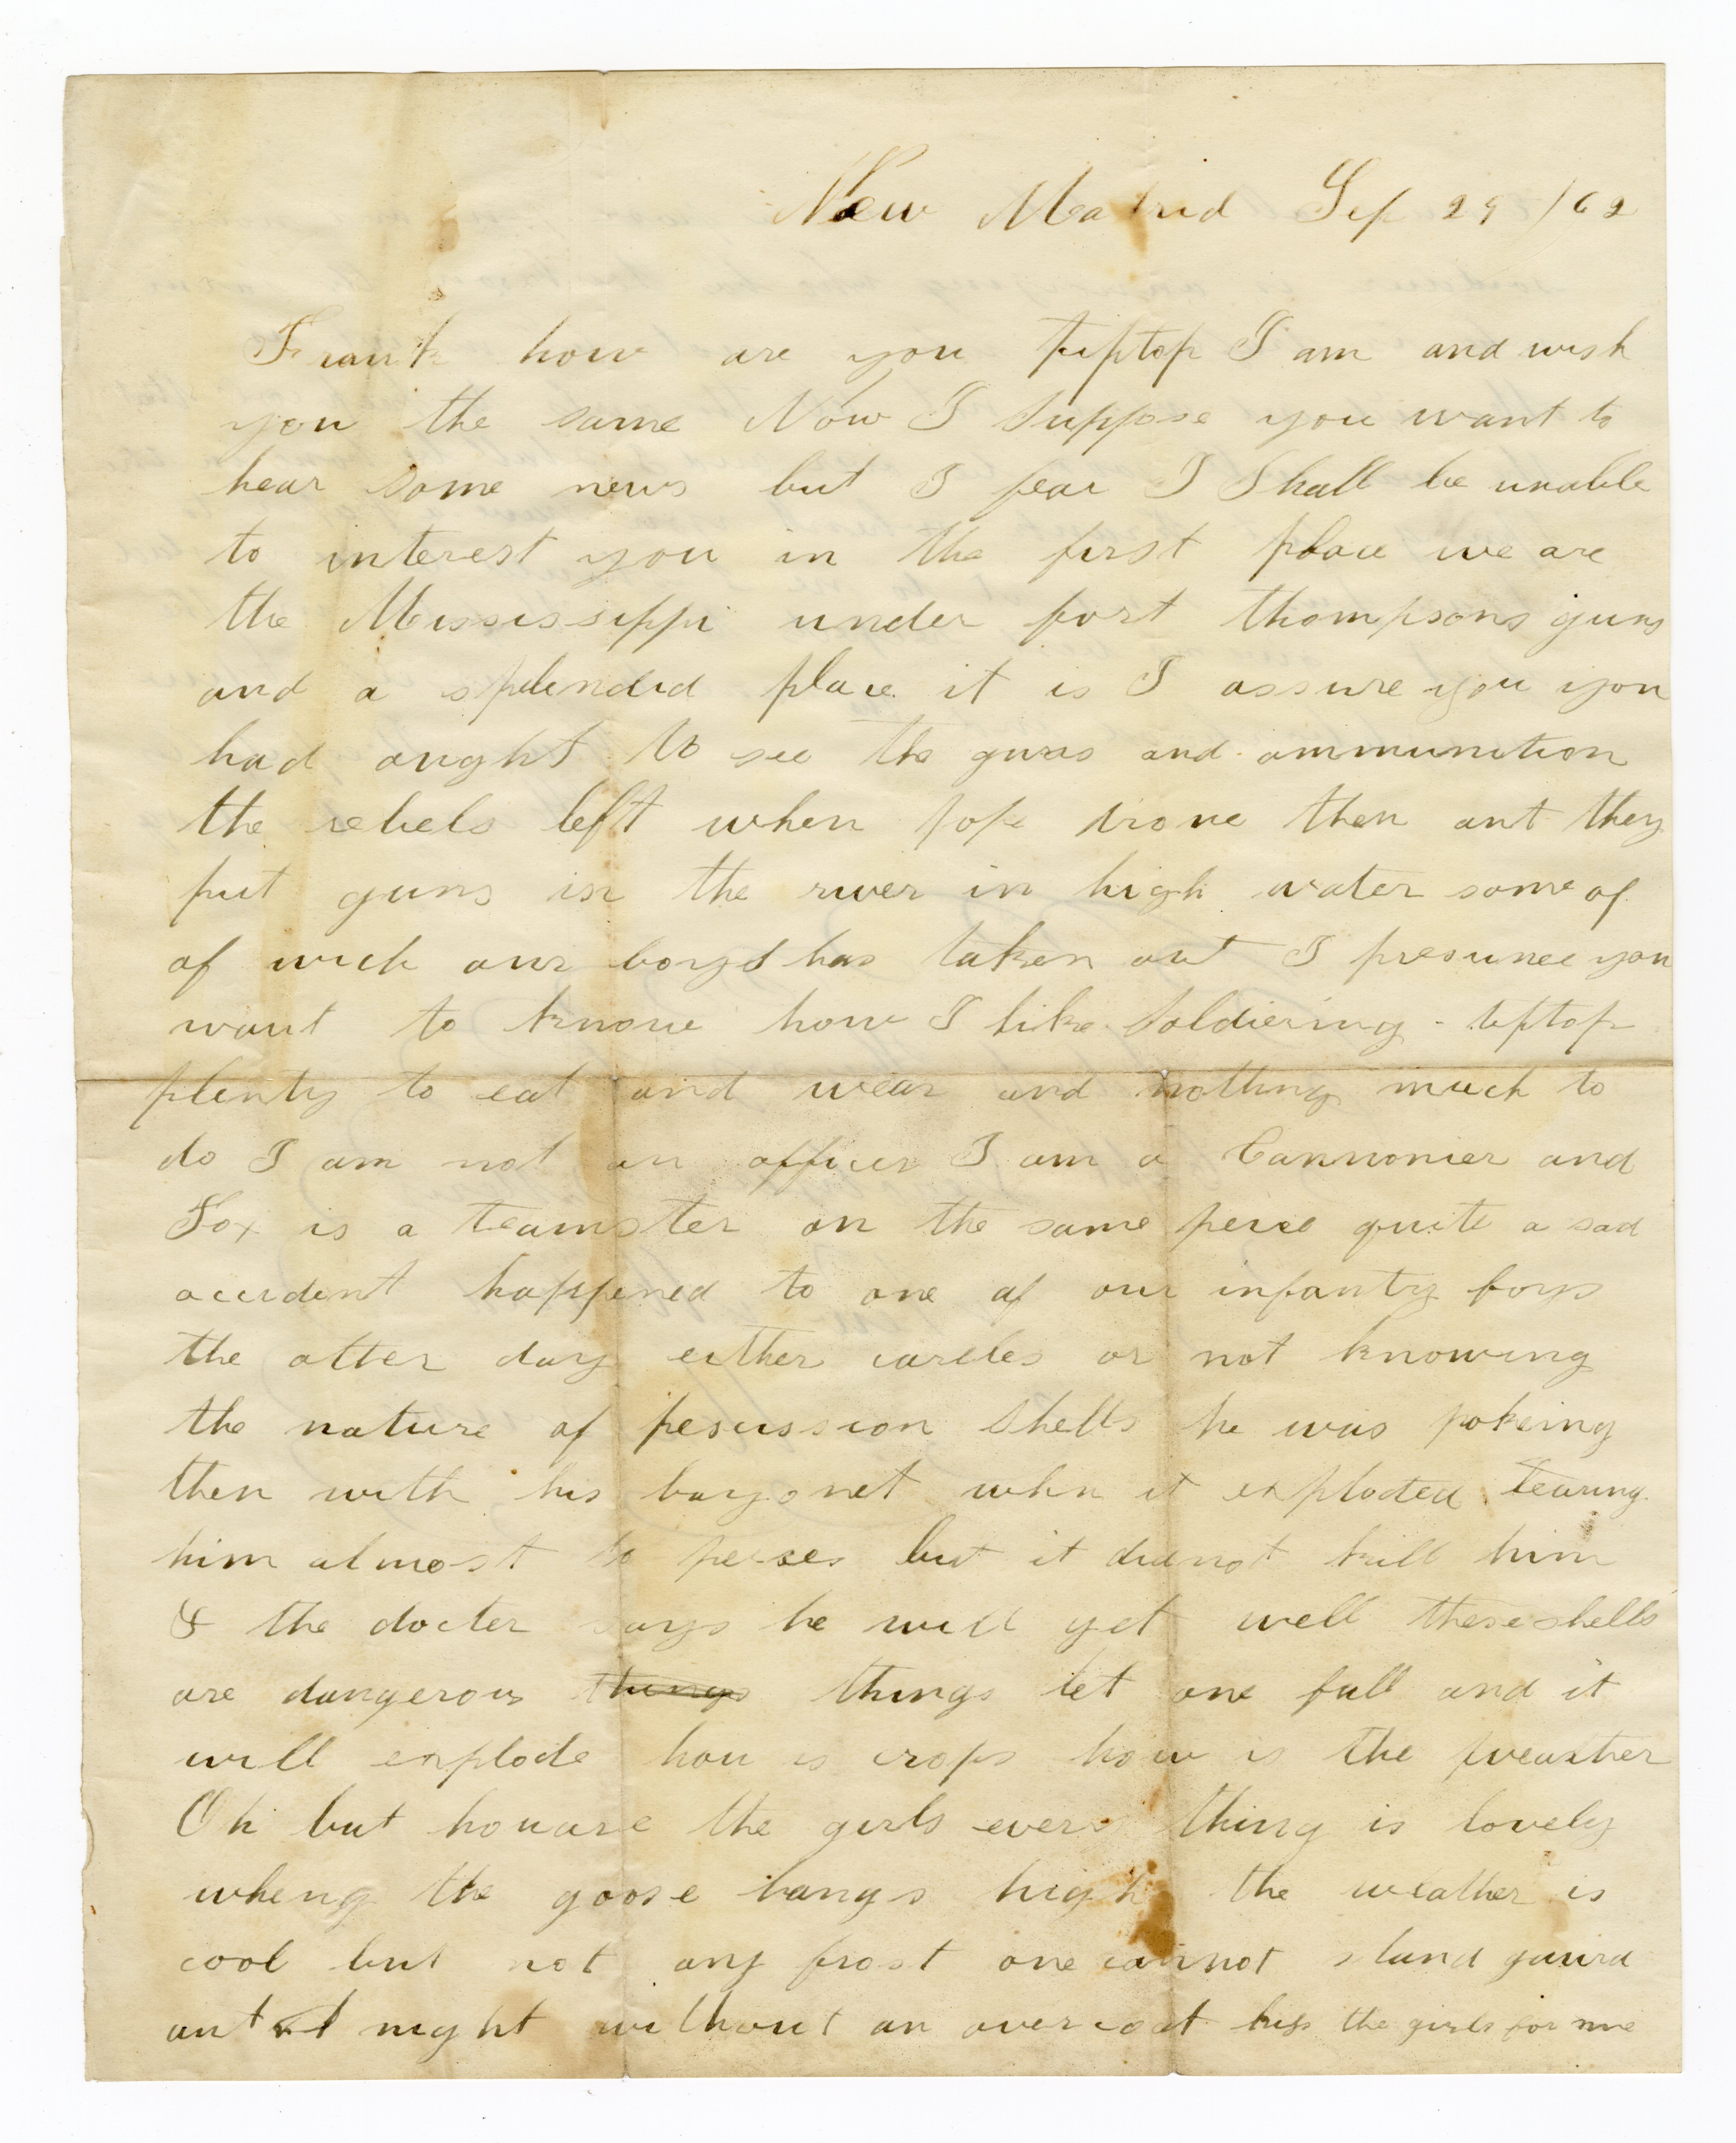 New Madrid Sep 29 /62
Frank how are you tiptop I am and wish
you the same Now I suppose you want to
hear some news but I fear I Shall be unable
to interest you in the first place we are
the Mississippi under fort thompsons guns
and a splendid place it is I assure you you
had aught to see the guns and ammunition
the rebels left when pope drove then out they
put guns in the river in high water some of
of wich our boys has taken out I presumee you
want to know how I like Soldiering - tiptop
plenty to eat and wear and nothing much to
do I am not an officer I am a Cannonier and
Fox is a teamster on the same peice quite a sad
accident happened to one of our infantry boys
the other day either carles or not knowing
the nature of pescussion shells he was pokeing
then with his bayonet when it exploded tearing
him almost to peases but it did not kill him
& the docter says he will get well these shells
are dangerous things things let one fall and it
will explode how is crops how is the weather
Oh but how are the girls every thing is lovely
wheng the goose hangs high the weather is
cool but not any frost one cannot stand guard
out at night without an over coat kiss the girls for me